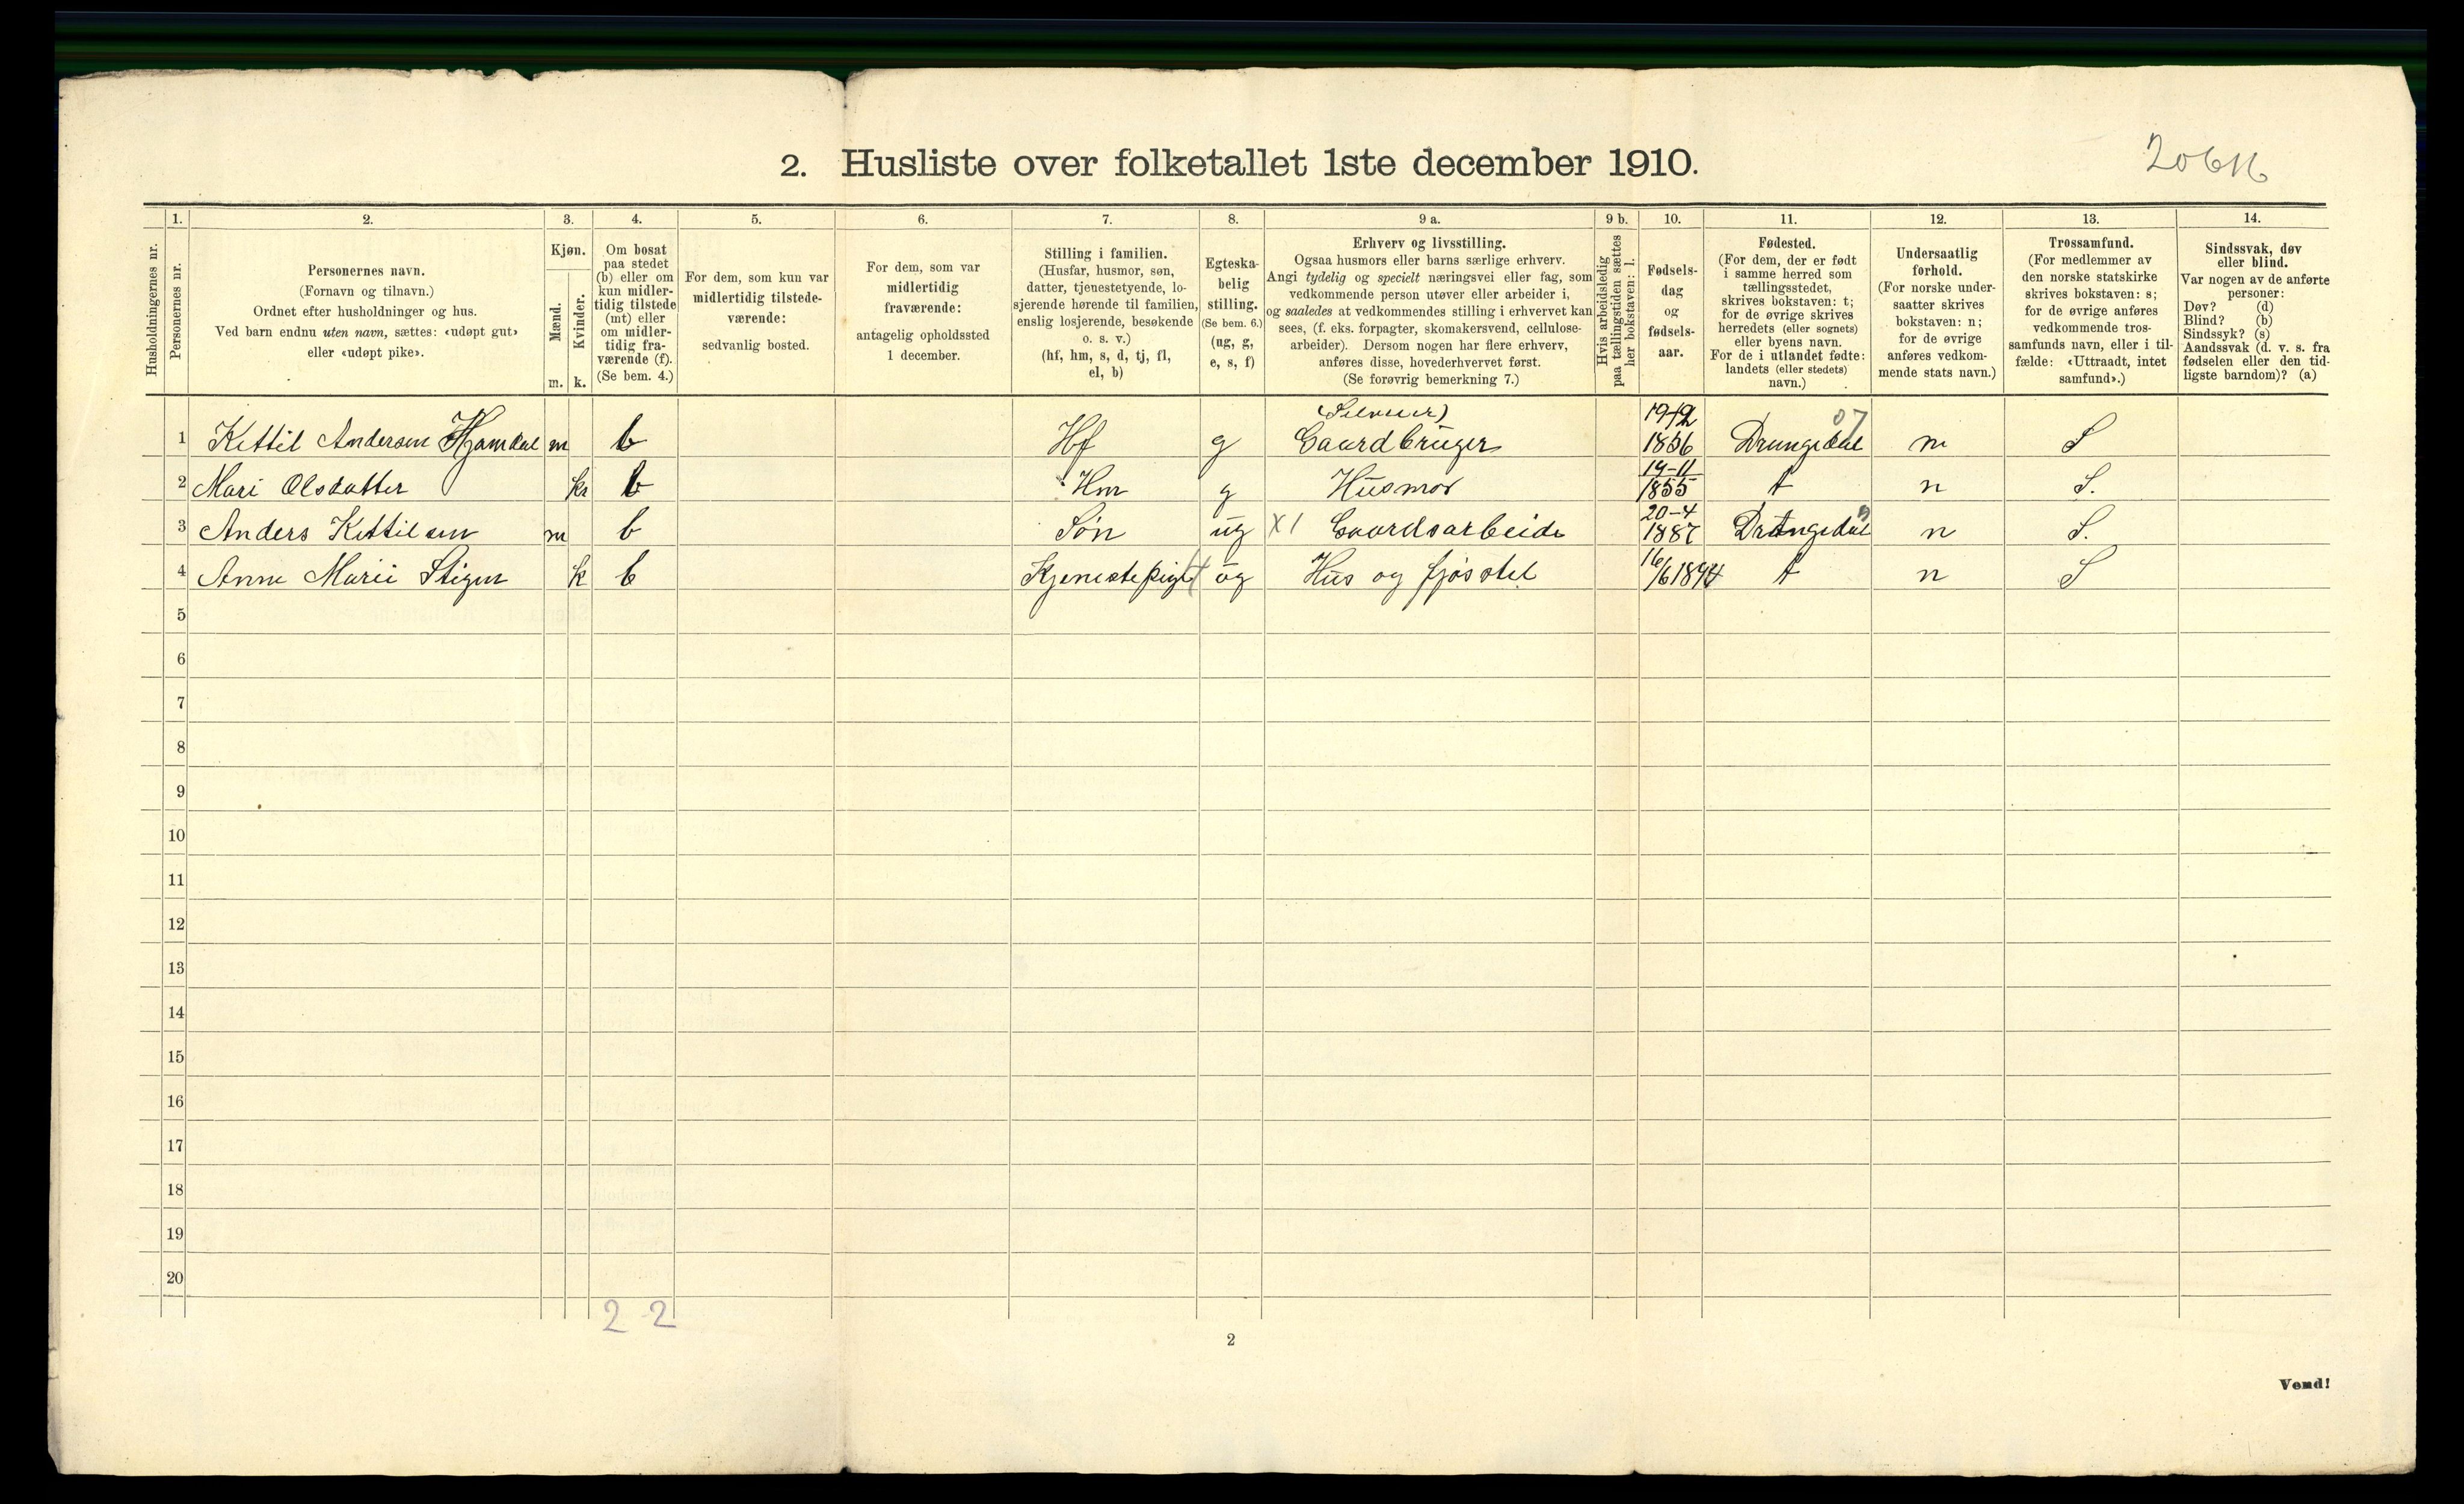 2. Husliste over folketallet 1ste december 1910.
1. 2. 3. 4. 5. 6. 7. 8. 9 a. 9 b. 10. 11. 12. 13. 14.
Husholdningernes nr.
Personernes nr.
Personernes navn.
(Fornavn og tilnavn.)
Ordnet efter husholdninger og hus.
Ved barn endnu uten navn, sættes: «udøpt gut»
eller «udøpt pike».
Kjøn.
Mænd.
Kvinder.
m. k.
Om bosat
paa stedet
(b) eller om
kun midler-
tidig tilstede
(mt) eller
om midler-
tidig fra-
værende (f).
(Se bem. 4.)
For dem, som kun var
midlertidig tilstede-
værende:
sedvanlig bosted.
For dem, som var
midlertidig
fraværende:
antagelig opholdssted
1 december.
Stilling i familien.
(Husfar, husmor, søn,
datter, tjenestetyende, lo-
sjerende hørende til familien,
enslig losjerende, besøkende
o. s. v.)
(hf, hm, s, d, tj, fl,
el, b)
Egteska-
belig
stilling.
(Se bem. 6.)
(ug, g,
e, s, f)
Erhverv og livsstilling.
Ogsaa husmors eller barns særlige erhverv.
Angi tydelig og specielt næringsvei eller fag, som
vedkommende person utøver eller arbeider i,
og saaledes at vedkommendes stilling i erhvervet kan
sees, (f. eks. forpagter, skomakersvend, cellulose-
arbeider). Dersom nogen har flere erhverv,
anføres disse, hovederhvervet først.
(Se forøvrig bemerkning 7.)
Hvis arbeidsledig
paa tællingstiden sættes
her bokstaven: l.
Fødsels-
dag
og
fødsels-
aar.
Fødested.
(For dem, der er født
i samme herred som
tællingsstedet,
skrives bokstaven: t;
for de øvrige skrives
herredets (eller sognets)
eller byens navn.
For de i utlandet fødte:
landets (eller stedets)
navn.)
Undersaatlig
forhold.
(For norske under-
saatter skrives
bokstaven: n;
for de øvrige
anføres vedkom-
mende stats navn.)
Trossamfund.
(For medlemmer av
den norske statskirke
skrives bokstaven: s;
for de øvrige anføres
vedkommende tros-
samfunds navn, eller i til-
fælde: «Uttraadt, intet
samfund».)
Sindssvak, døv
eller blind.
Var nogen av de anførte
personer:
Døv? (d)
Blind? (b)
Sindssyk? (s)
Aandssvak (d. v. s. fra
fødselen eller den tid-
ligste barndom)? (a)
(Selveier) 19-12 07
1 Kittil Andersen Hjamdal m b Hf g Gaardbruger 1856 Drangedal n S
19-11
2 Mari Olsdatter k b Hm g Husmor 1855 t n S.
20-4
3 Anders Kittilsen m b Søn ug X1 Gaardsarbeide 1887 Drangedal n S.
4 Anne Marie Stigen k b Kjenestepige ug Hus og fjøsstel 16/6 1894 t n S
5
6
7
8
9
10
11
12
13
14
15
16
17
18
19
20
2-2
2
Vend!